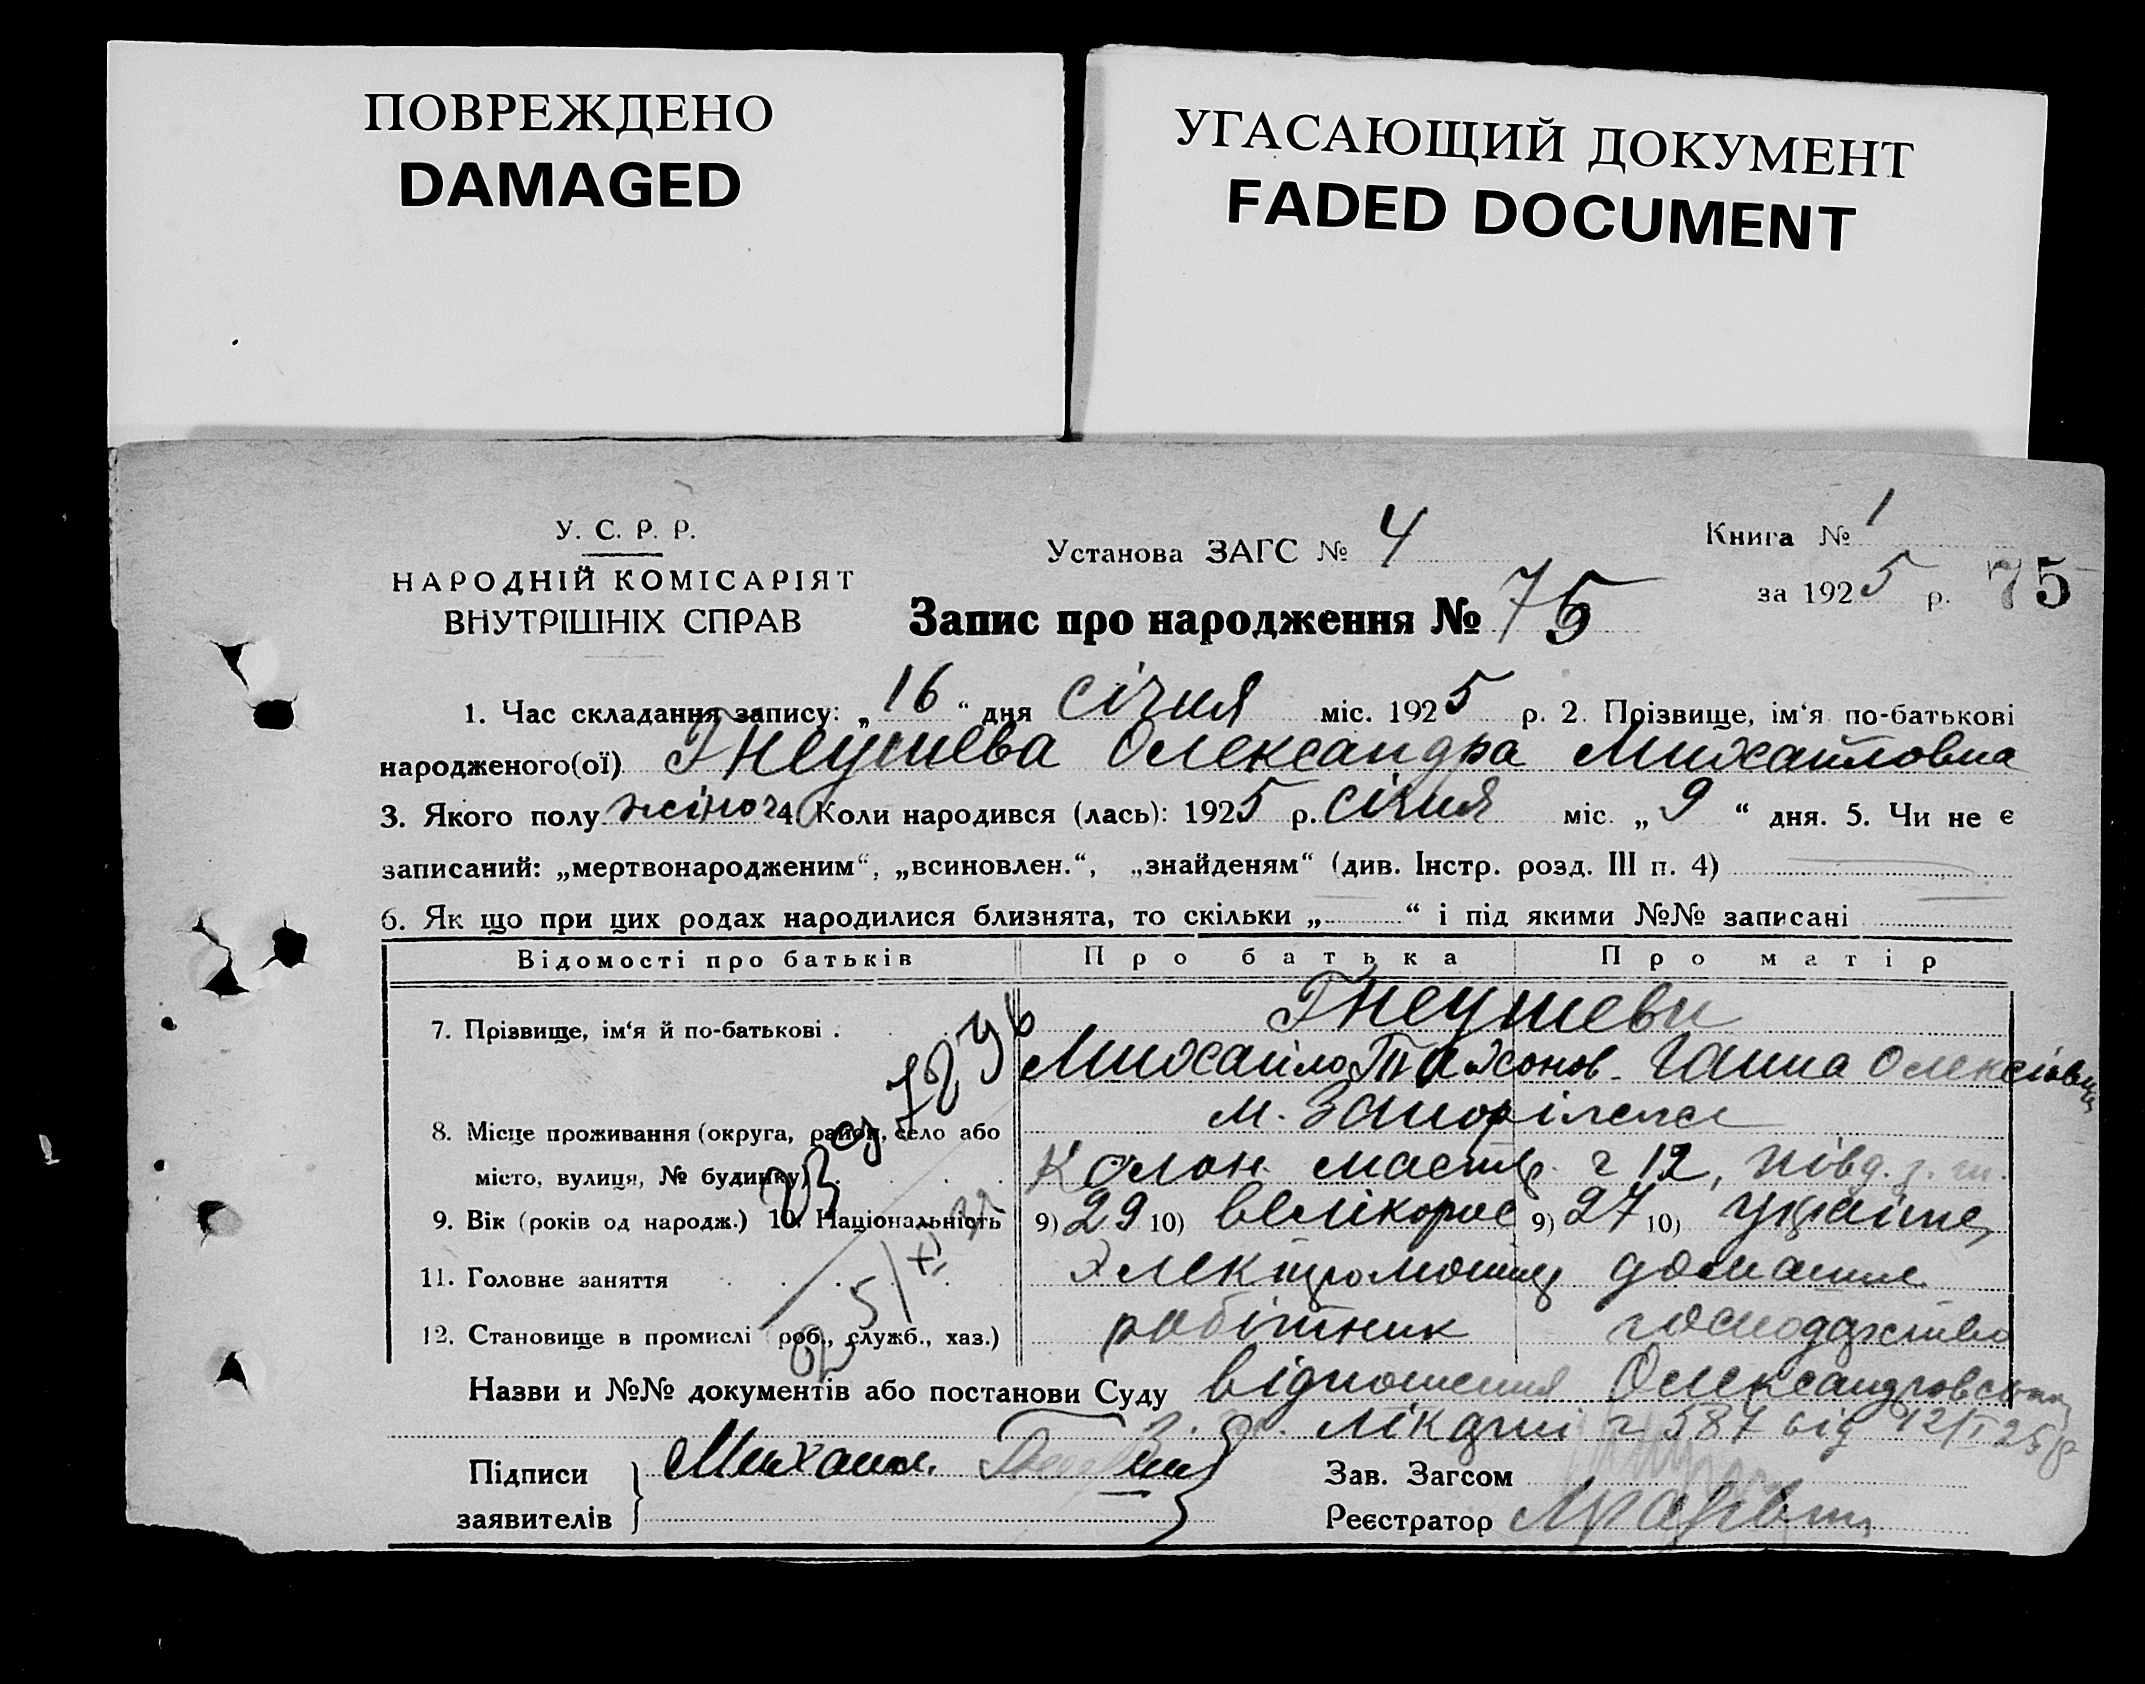 ПОВРЕЖДЕНО
DAMAGED
УГАСАЮЩИЙ ДОКУМЕНТ
FADED DOCUMENT
У. С. Р. Р.
НАРОДНІЙ КОМІСАРІЯТ
ВНУТРІШНІХ СПРАВ
Установа ЗАГС № 4
Книга № 1
за 1925 р. 75
Запис про народження № 75
1. Час складання запису: „16“ дня січня міс. 1925 р. 2. Прізвище, ім‘я по-батькові
народженого(ої) Гнеушева Олександра Михайловна
3. Якого полу жіноч 4 Коли народився (лась): 1925 р. січня міс. „9“ дня. 5. Чи не є
записаний: „мертвонародженим“, „всиновлен.“, „знайденям“ (див. Інстр. розд. III п. 4)
6. Як що при цих родах народилися близнята, то скільки „ “ і під якими №№ записані
Відомості про батьків Про батька Про матір
7. Прізвище, ім‘я й по-батькові . Гнеушеви
Михайло Тихонов. Ганна Олексіївна
8. Місце проживання (округа, район, село або м. Запоріжжя
місто, вулиця, № будинку) Колон. маст. ч 12, півд.
9. Вік (років од народж.) 10. Національність 9) 29 10) велікорос 9) 27 10) Украінц.
11. Головне заняття Электромонт домашнє
12. Становище в промислі (роб., служб., хаз.) робітник господарство
Назви и №№ документів або постанови Суду відношення Олександровской
лікарні ч 587 від 12/I 25 р
Підписи Михаил. Зав. Загсом
заявителів Реєстратор